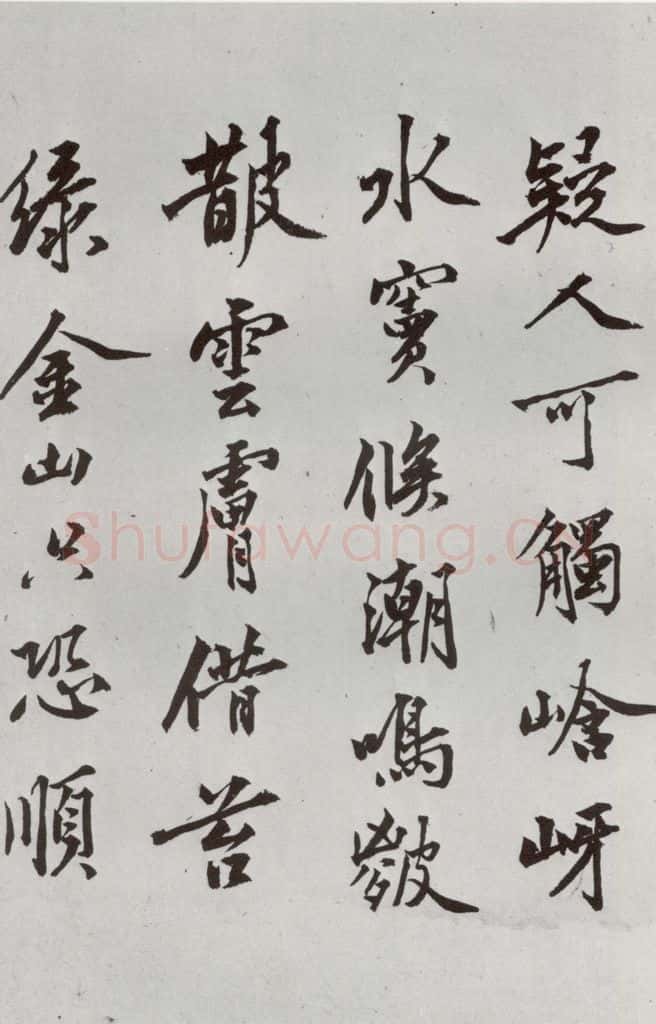 疑人可觸𡺽岈
水竇候潮鳴皺
皵雲膚借苔
緑金山只恐順
Shufawang.cn